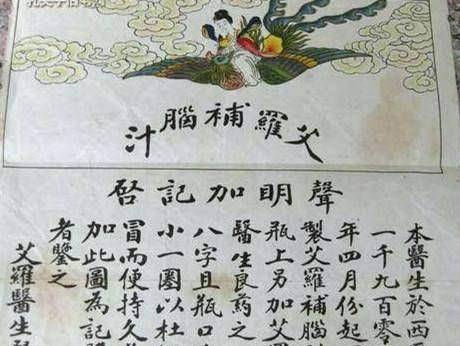 艾羅補腦汁
聲明加記啓
本醫生於西
一千九百零
年四月份起
製艾羅補腦
瓶上另加艾
醫生良藥之
八字且瓶口
小一圈以杜
冒而便持久
加此圖為記
者鑒之
艾羅醫生